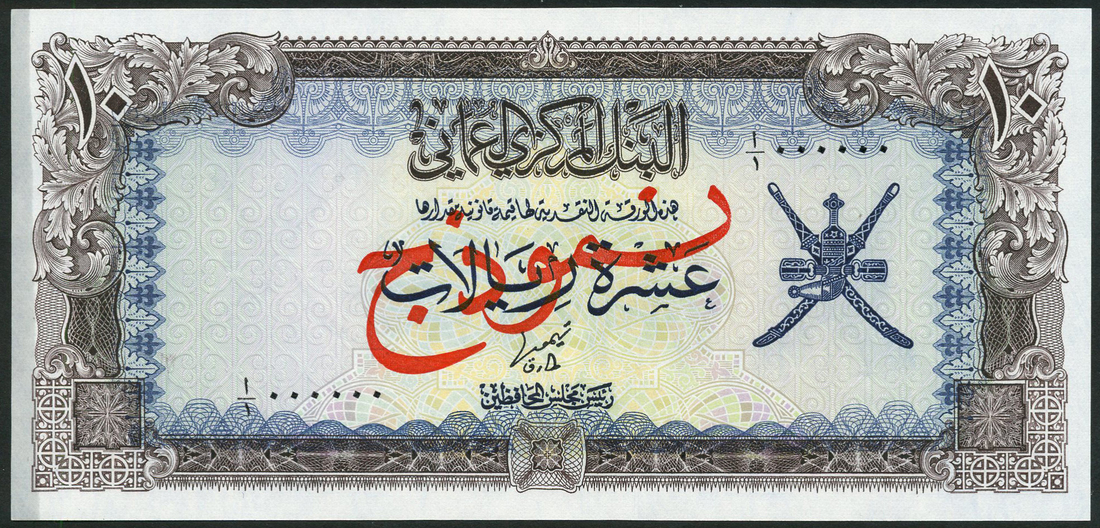 ١٠ ١٠
البنك المركزي العماني
١/١ ٠٠٠٠٠٠
هذه الورقة النقدية لها قيمة قانونية مقدارها
عشرة ريالات
نموذج
طارق تيمور
رئيس مجلس المحافظين
١/١ ٠٠٠٠٠٠